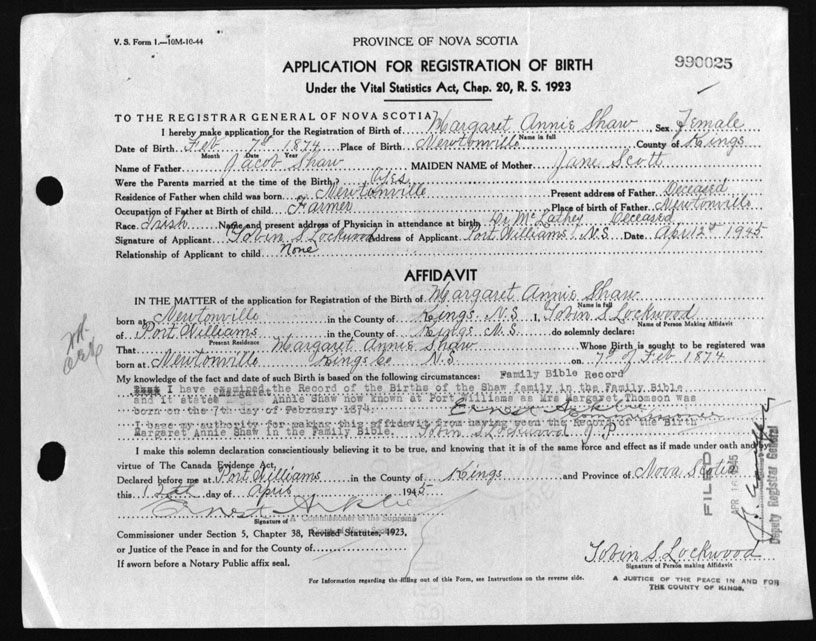 V. S. Form 1.—10M-10-44
PROVINCE OF NOVA SCOTIA
APPLICATION FOR REGISTRATION OF BIRTH
990025
Under the Vital Statistics Act, Chap. 20, R. S. 1923
TO THE REGISTRAR GENERAL OF NOVA SCOTIA
I hereby make application for the Registration of Birth of Margaret Annie Shaw Sex Female
Name in full
Date of Birth Feb 7th 1874 Place of Birth Newtonville County of Kings
Month Date Year
Name of Father Jacob Shaw MAIDEN NAME of Mother Jane Scott
Were the Parents married at the time of the Birth? Yes
Residence of Father when child was born Newtonville Present address of Father Deceased
Occupation of Father at Birth of child Farmer Place of birth of Father Newtonville
Race Irish Name and present address of Physician in attendance at birth Dr Deceased
Signature of Applicant Tobin S Lockwood Address of Applicant Port Williams N.S. Date April 12th 1945
Relationship of Applicant to child None
AFFIDAVIT
IN THE MATTER of the application for Registration of the Birth of Margaret Annie Shaw
Name in full
born at Newtonville in the County of Kings N.S I, Tobin S Lockwood
Name of Person Making Affidavit
of Port Williams in the County of Kings N.S. do solemnly declare:
Present Residence
That Margaret Annie Shaw Whose Birth is sought to be registered was
born at Newtonville Kings Co N.S on 7th of Feb 1874
My knowledge of the fact and date of such Birth is based on the following circumstances: Family Bible Record
I have examined the Record of the Births of the Shaw family in the Family Bible
and it states Margaret Annie Shaw now known at Port Williams as Mrs Margaret Thomson was
born on the 7th day of February 1874.
Commissioner
I base my authority for making this affidavit from having seen the Record of the Birth
Margaret Annie Shaw in the Family Bible. Tobin S Lockwood J.P
I make this solemn declaration conscientiously believing it to be true, and knowing that it is of the same force and effect as if made under oath and by
virtue of The Canada Evidence Act.
Declared before me at Port Williams in the County of Kings and Province of Nova Scotia
this 12th day of April 1945
Signature of A Commissioner of the Supreme
Court of Nova Scotia
Commissioner under Section 5, Chapter 38, Revised Statutes, 1923,
or Justice of the Peace in and for the County of
If sworn before a Notary Public affix seal.
FILED
APR 1945
Deputy Registrar General
Tobin S. Lockwood
Signature of Person making Affidavit
For Information regarding the filling out of this Form, see Instructions on the reverse side.
A JUSTICE OF THE PEACE IN AND FOR
THE COUNTY OF KINGS.